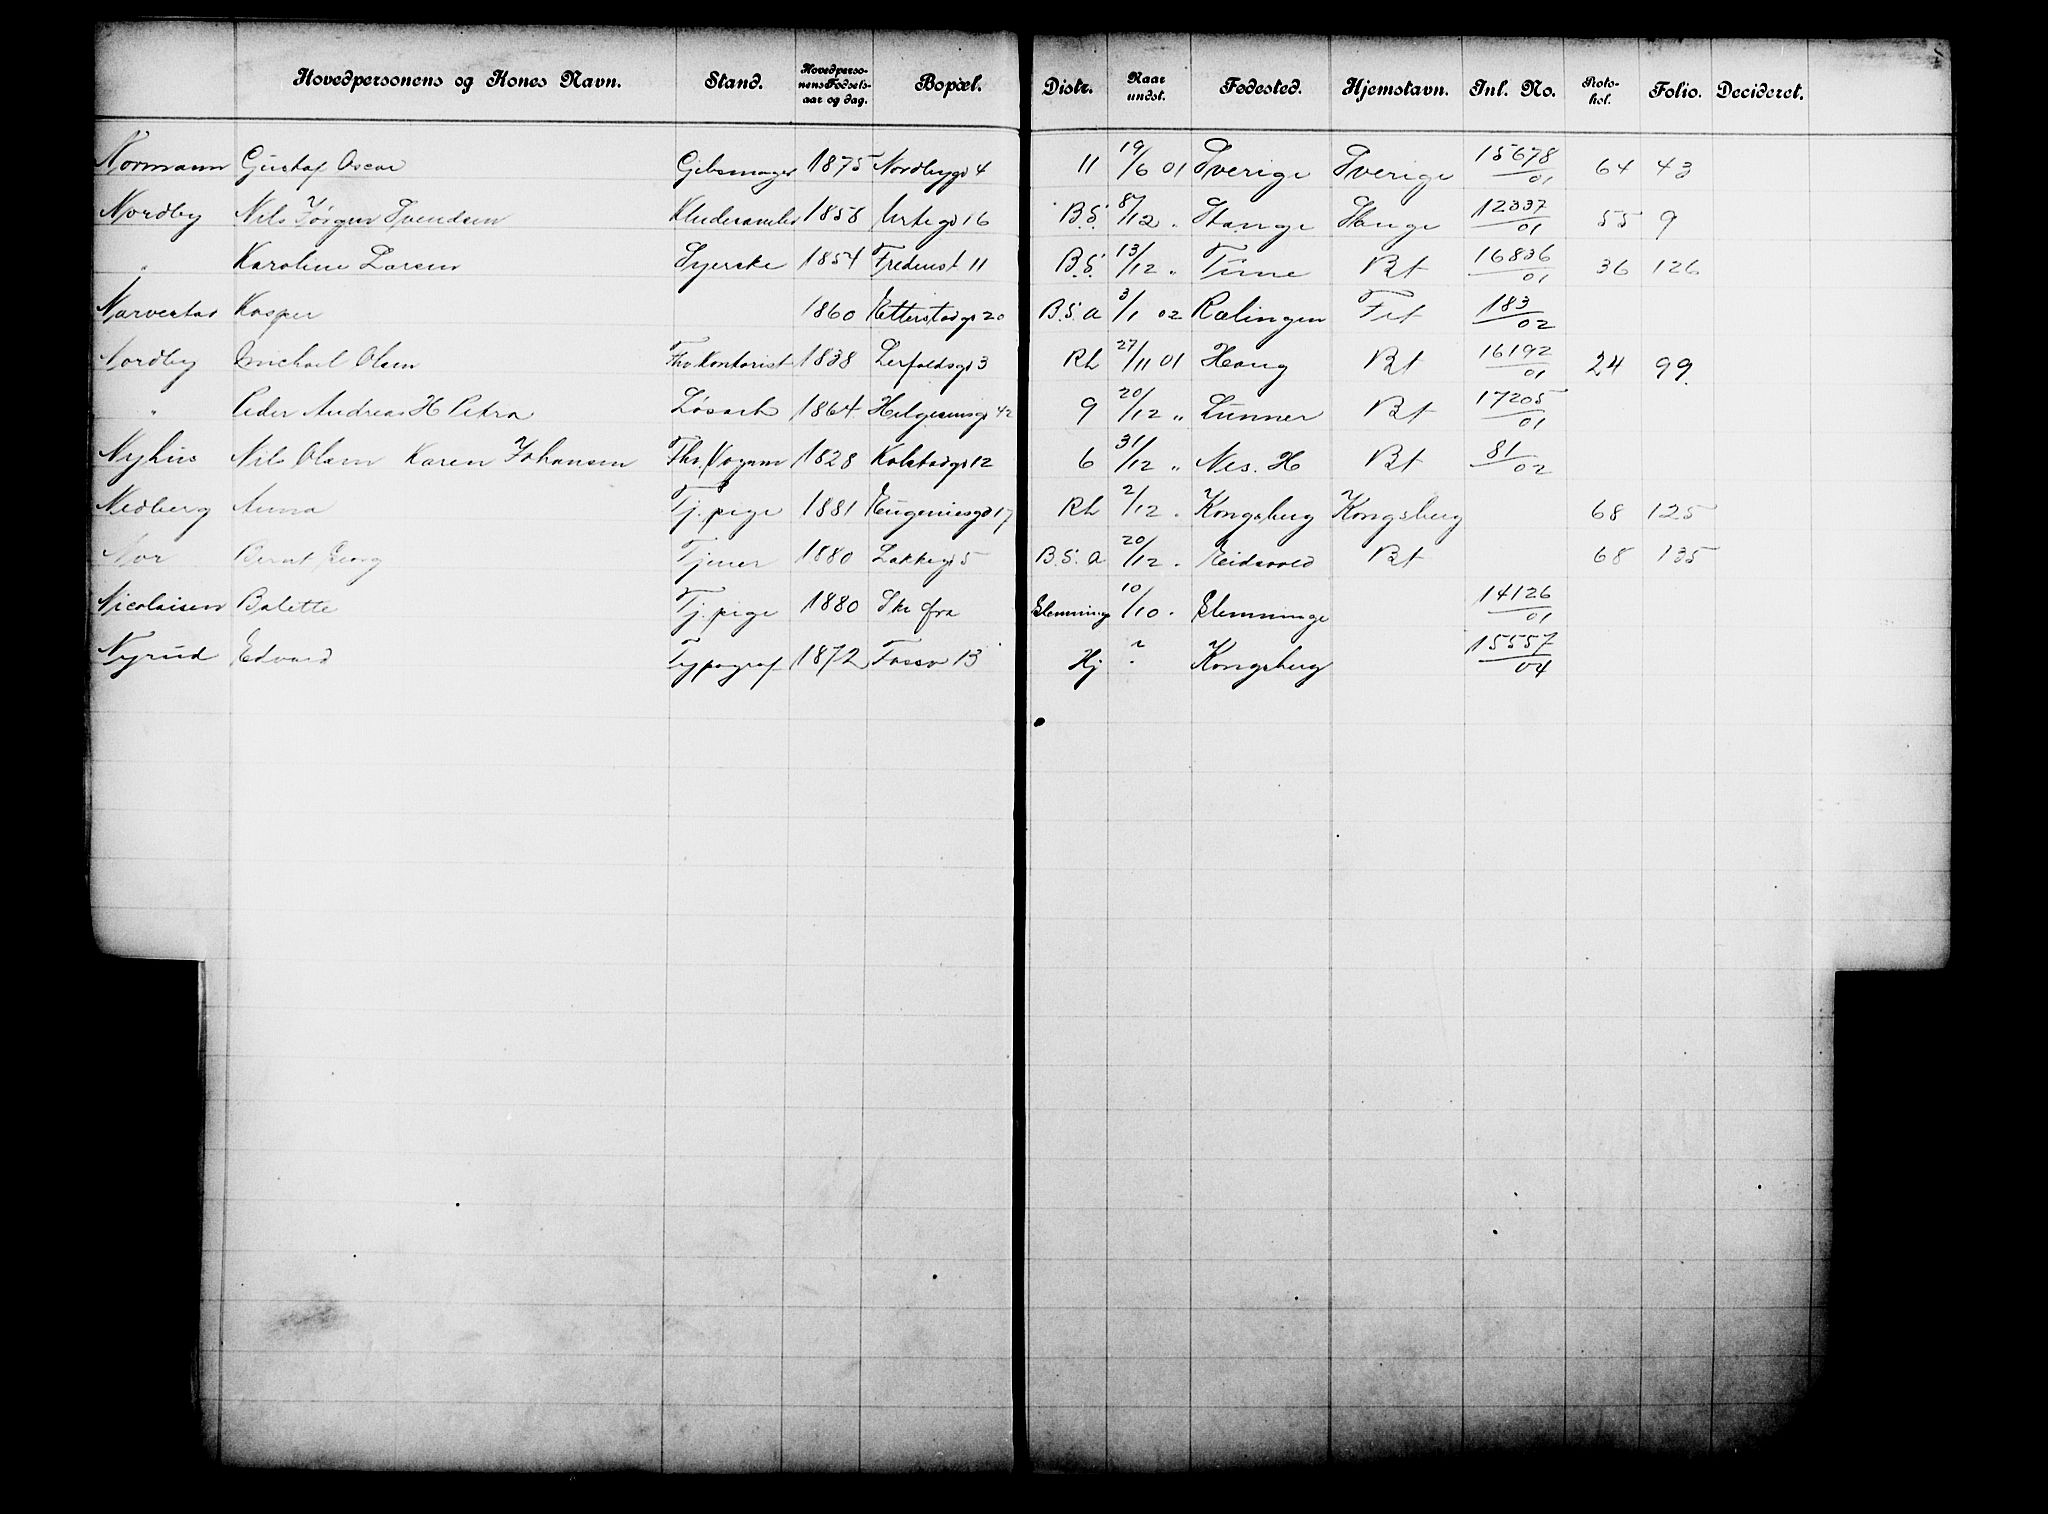 Hovedpersonens og Kones Navn. Stand. Hovedpersonens Fødselsaar og dag. Bopæl. Distr. Naar undst. Fødested. Hjemstavn. Inl. No. Protokol. Folio. Decideret.
Normann Gustaf Oscar Gibsmager 1875 Nordbygd 4 11 19/6 01 Sverige Sverige 15678/01 64 43
Nordby Nils Jørgen Svendsen Kludesamler 1858 Urtegd 16 B.S. /12 " Stange Stange 12337/01 55 9
" Karoline Larsen Syerske 1854 Fredenst 11 B.S. 13/12 " Time Bt 16836/01 36 126
Narvestad Kasper 1860 Etterstadgd 20 B.S. a 3/1 02 Rælingen Fet 183/02
Nordby Michael Olsen Fhv Kontorist 1838 Lerfaldsgd 3 Rh 27/11 01 Haug Bt 16192/01 24 99
" Peder Andreas H Petra Løsarb 1864 Helgesensgd 42 9 20/12 " Lunner Bt 17205/01
Nyhus Nils Olsen Karen Johansen Fhv Vognm 1828 Kolstadgd 12 6 31/12 " Nes. H Bt 81/02
Nedberg Anna Tj. pige 1881 Eugeniesgd 17 Rh 2/12 " Kongsberg Kongsberg 68 125
Nor Bernt Georg Tjener 1880 Lakkegd 5 B.S. a 20/12 " Eidsvold Bt 68 135
Nicolaisen Bolette Tj. pige 1880 Skr fra Slemminge 10/10 " Slemminge 14126/01
Nyrud Edvard Typograf 1872 Fossv 13 Hj ? Kongsberg 15557/04